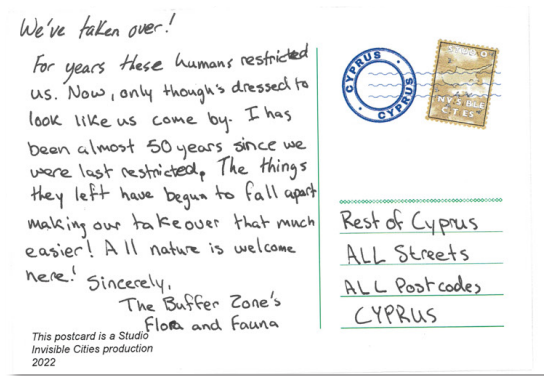 We've taken over!
For years these humans restricted
us. Now, only though's dressed to
look like us come by. I has
been almost 50 years since we
were last restricted. The things
they left have begun to fall apart
making our takeover that much
easier! All nature is welcome
here!
Sincerely,
The Buffer Zone's
Flora and Fauna
This postcard is a Studio
Invisible Cities production
2022
CYPRUS
CYPRUS
Rest of Cyprus
ALL Streets
ALL Postcodes
CYPRUS